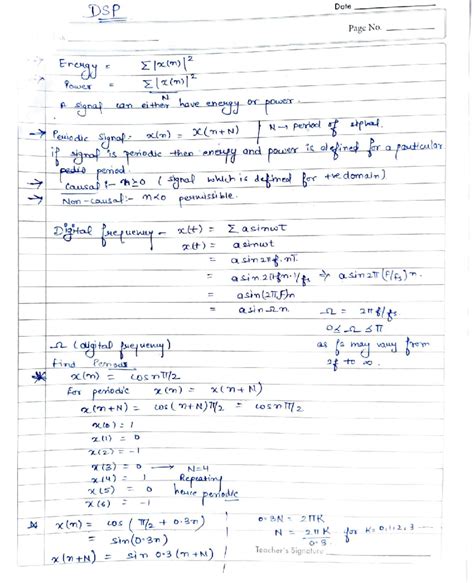 DSP
Date
Page No.
Energy = Σ|x(n)|²
Power = Σ|x(n)|²/N
A signal can either have energy or power.
→ Periodic Signal:- x(n) = x(n+N) | N→ period of signal.
if signal is periodic then energy and power is defined for a particular
period.
→ Causal :- n≥0 ( signal which is defined for +ve domain)
→ Non-causal:- n<0 permissible.
Digital frequency - x(t) = Σ asinωT
x(t) = asinωt
= asin2πf.nT.
= asin2πfn.1/fs ⇒ asin2π(f/fs)n.
= asin(2πF)n
= asinΩn Ω = 2πf/fs
0≤Ω≤π
Ω (digital frequency) as fs may vary from
2f to ∞.
Find Period
x(n) = cosnπ/2
For periodic x(n) = x(n+N)
x(n+N) = cos(n+N)π/2 = cosnπ/2
x(0) = 1
x(1) = 0
x(2) = -1
x(3) = 0 → N=4
x(4) = 1 Repeating
x(5) = 0 hence periodic
x(6) = -1
x(n) = cos (π/2 + 0.3n) 0.3N = 2πK
= sin(0.3n) N = 2πK/0.3 for K=0,1,2,3---
x(n+N) = sin 0.3(n+N)
Teacher's Signature